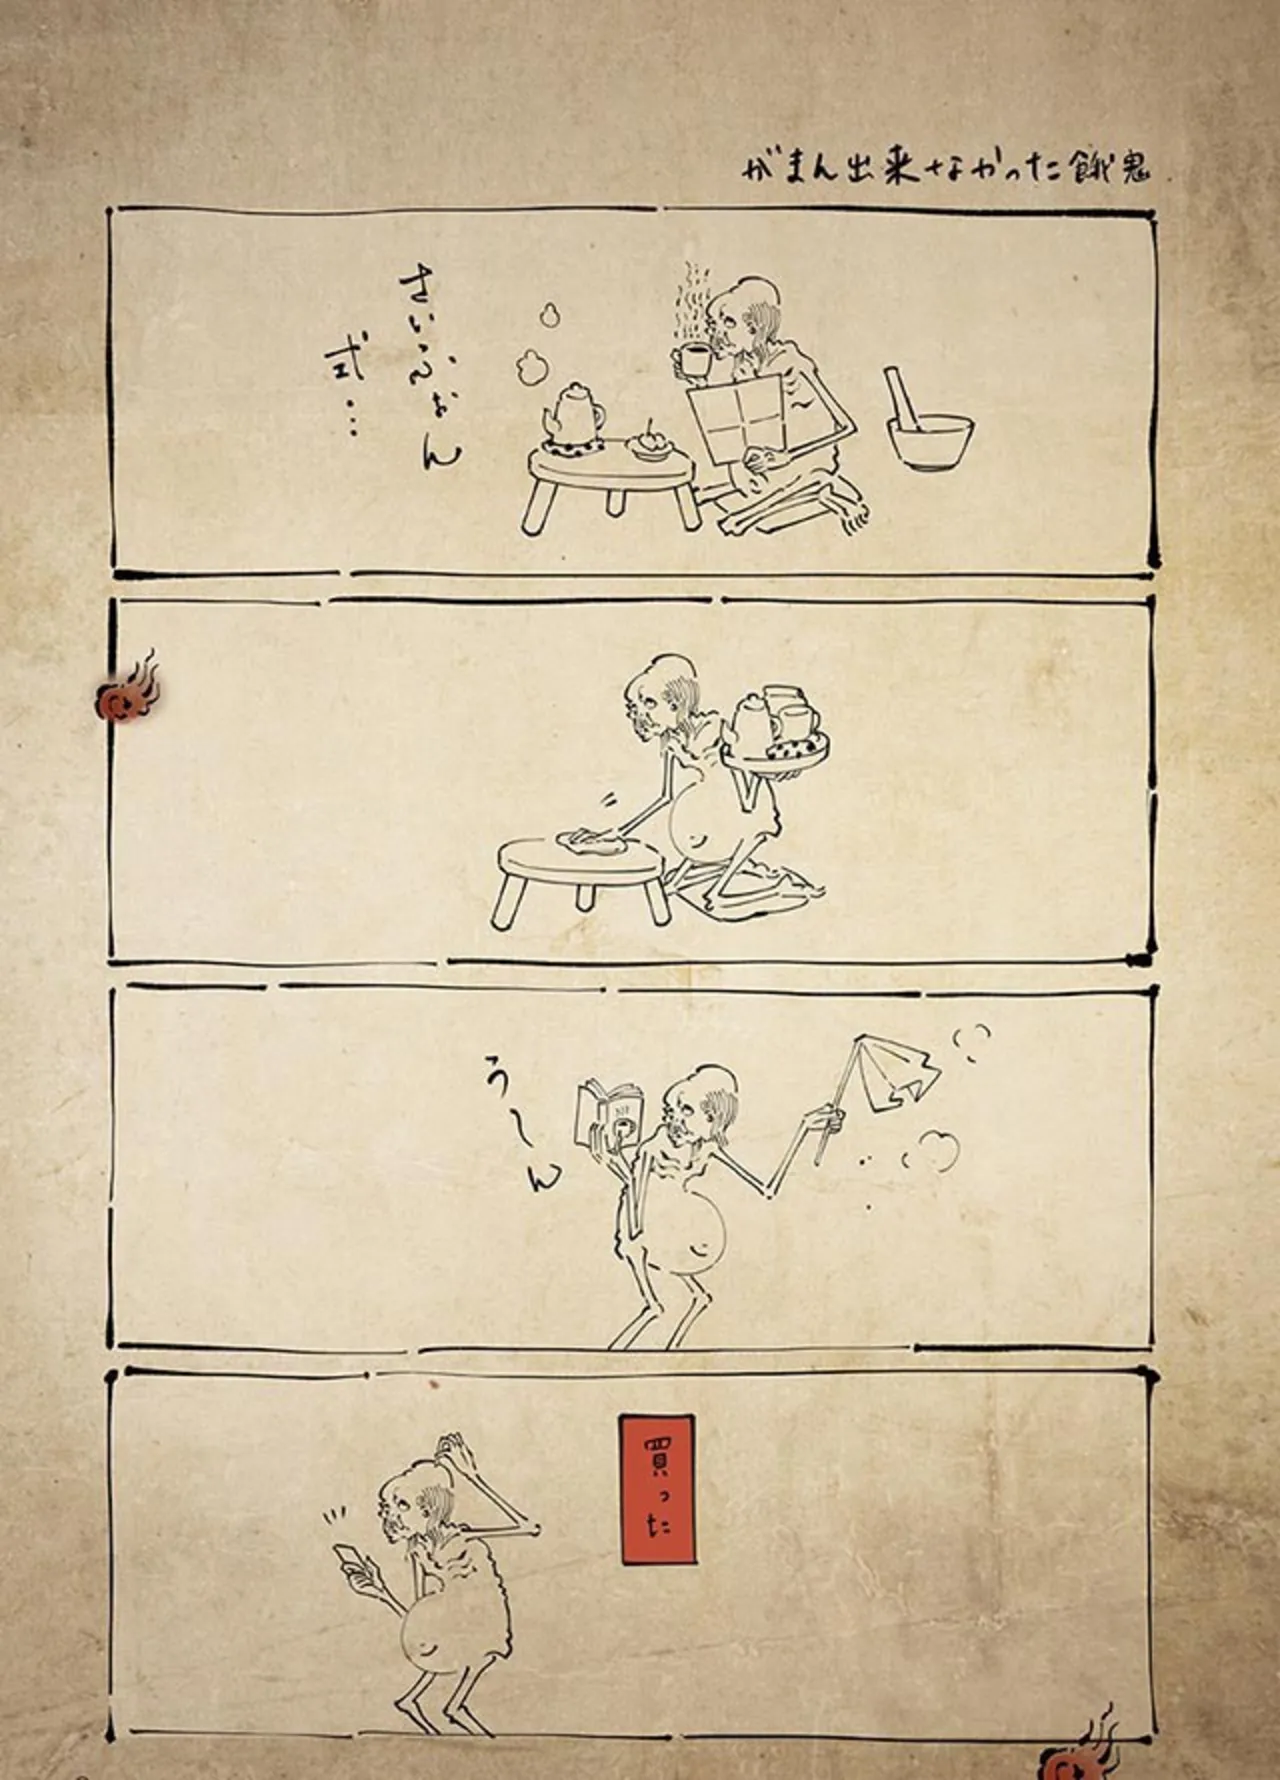 がまん出来なかった餓鬼
さいふぉん
式…
うーん
買った